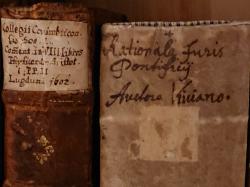 Collegii Conimbricen
Coment. in VIII libros
Physicor. Aristot.
I. P. II
Lugduni 1602.
Rationale Iuris
Pontificij
Auctore Viviano.